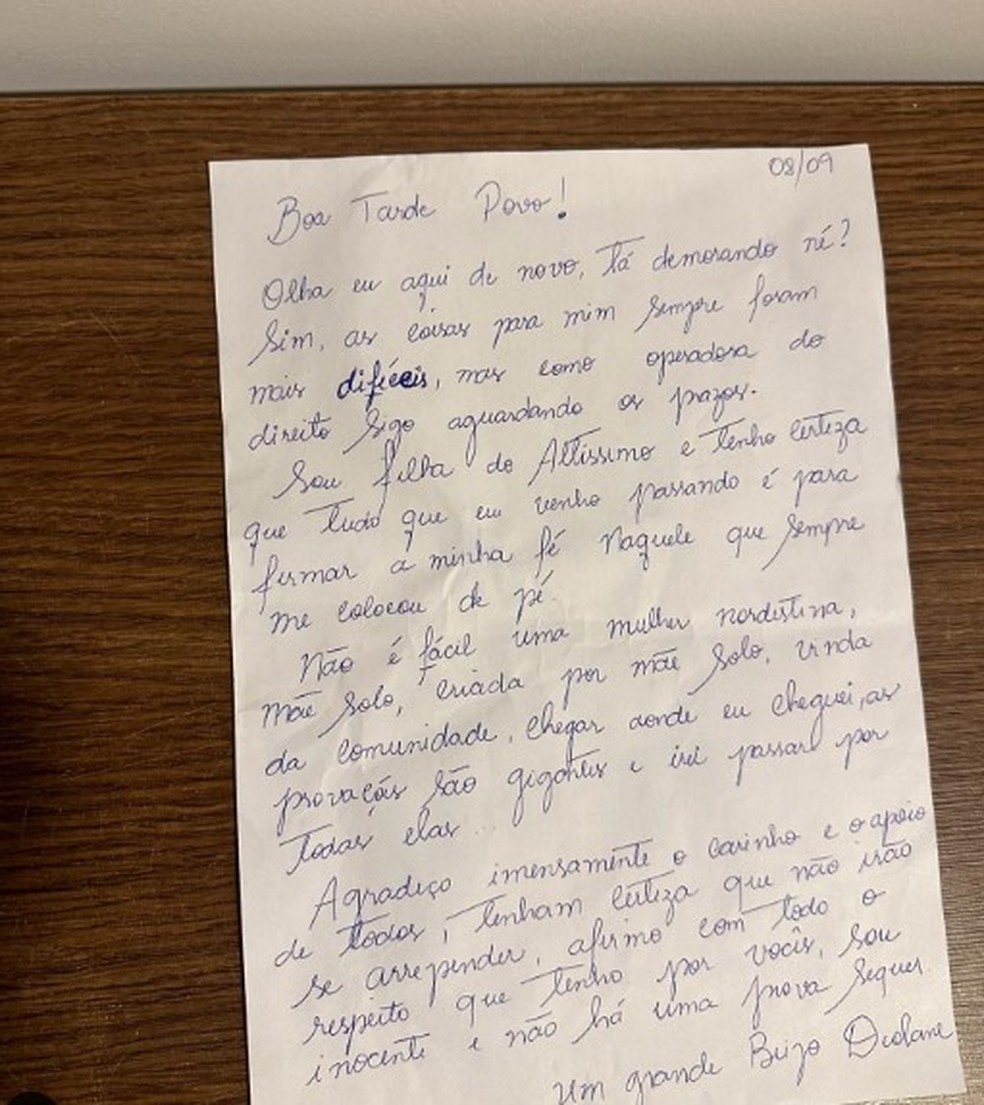 08/09
Boa Tarde Povo!
Olha eu aqui de novo, Tá demorando né?
Sim, as coisas para mim sempre foram
mais difíceis, mas como operadora do
direito sigo aguardando os prazos.
Sou filha do Altíssimo e Tenho certeza
que Tudo que eu venho passando é para
firmar a minha fé Naquele que sempre
me colocou de pé.
Não é fácil uma mulher nordestina,
mãe solo, criada por mãe solo, vinda
da comunidade, chegar aonde eu cheguei, as
provações são gigantes e irei passar por
Todas elas...
Agradeço imensamente o carinho e o apoio
de Todos, Tenham certeza que não irão
se arrepender, afirmo com Todo o
respeito que Tenho por vocês, sou
inocente e não há uma prova sequer
Um grande Beijo Deolane